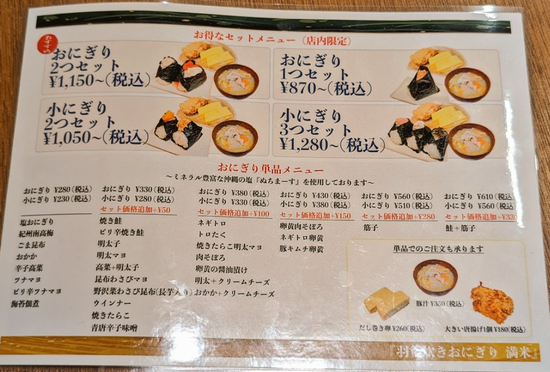 おすすめ
お得なセットメニュー（店内限定）
おにぎり
2つセット
¥1,150~(税込)
おにぎり
1つセット
¥870~(税込)
小にぎり
2つセット
¥1,050~(税込)
小にぎり
3つセット
¥1,280~(税込)
おにぎり単品メニュー
～ミネラル豊富な沖縄の塩「ぬちまーす」を使用しております～
おにぎり ¥280(税込)
小にぎり ¥230(税込)
塩おにぎり
紀州南高梅
ごま昆布
おかか
辛子高菜
ツナマヨ
ピリ辛ツナマヨ
海苔佃煮
おにぎり ¥330(税込)
小にぎり ¥280(税込)
セット価格追加+¥50
焼き鮭
ピリ辛焼き鮭
明太子
明太マヨ
高菜+明太子
昆布わさびマヨ
野沢菜わさび昆布(長芋入り)
ウインナー
焼きたらこ
青唐辛子味噌
おにぎり ¥380(税込)
小にぎり ¥330(税込)
セット価格追加+¥100
ネギトロ
トロたく
焼きたらこ明太マヨ
肉そぼろ
卵黄の醤油漬け
明太+クリームチーズ
おかか+クリームチーズ
おにぎり ¥430(税込)
小にぎり ¥380(税込)
セット価格追加+¥150
卵黄肉そぼろ
ネギトロ卵黄
豚キムチ卵黄
おにぎり ¥560(税込)
小にぎり ¥510(税込)
セット価格追加+¥280
筋子
おにぎり ¥610(税込)
小にぎり ¥560(税込)
セット価格追加+¥330
鮭+筋子
単品でのご注文も承ります
豚汁 ¥350(税込)
だし巻き卵 ¥260(税込)
大きい唐揚げ1個 ¥180(税込)
炊きおにぎり 満米』